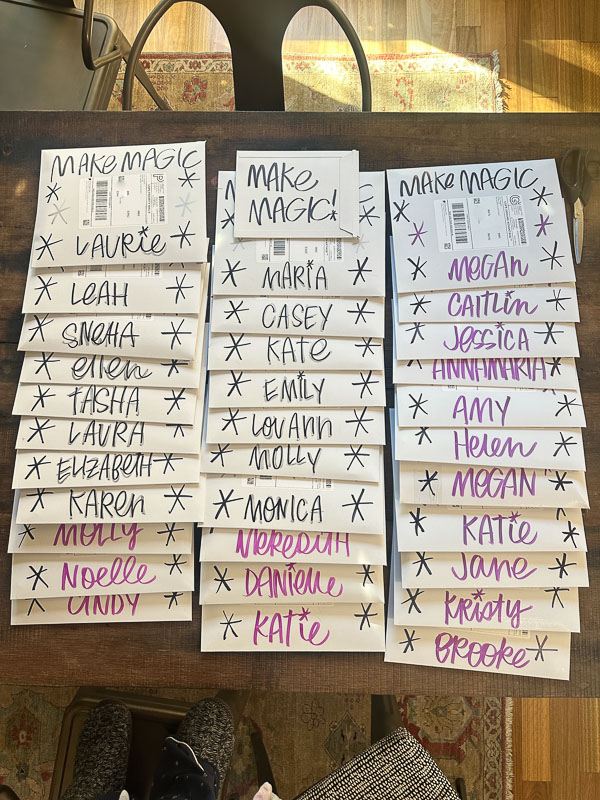 MAKE MAGIC
LAURIE
LEAH
SNEHA
ELLEN
TASHA
LAURA
ELIZABETH
KAREN
MOLLY
NOELLE
CINDY
MAKE
MAGIC!
MARIA
CASEY
KATE
EMILY
LOUANN
MOLLY
MONICA
MEREDITH
DANIELLE
KATIE
MAKE MAGIC
MEGAN
CAITLIN
JESSICA
ANNAMARIA
AMY
HELEN
MEGAN
KATIE
JANE
KRISTY
BROOKE